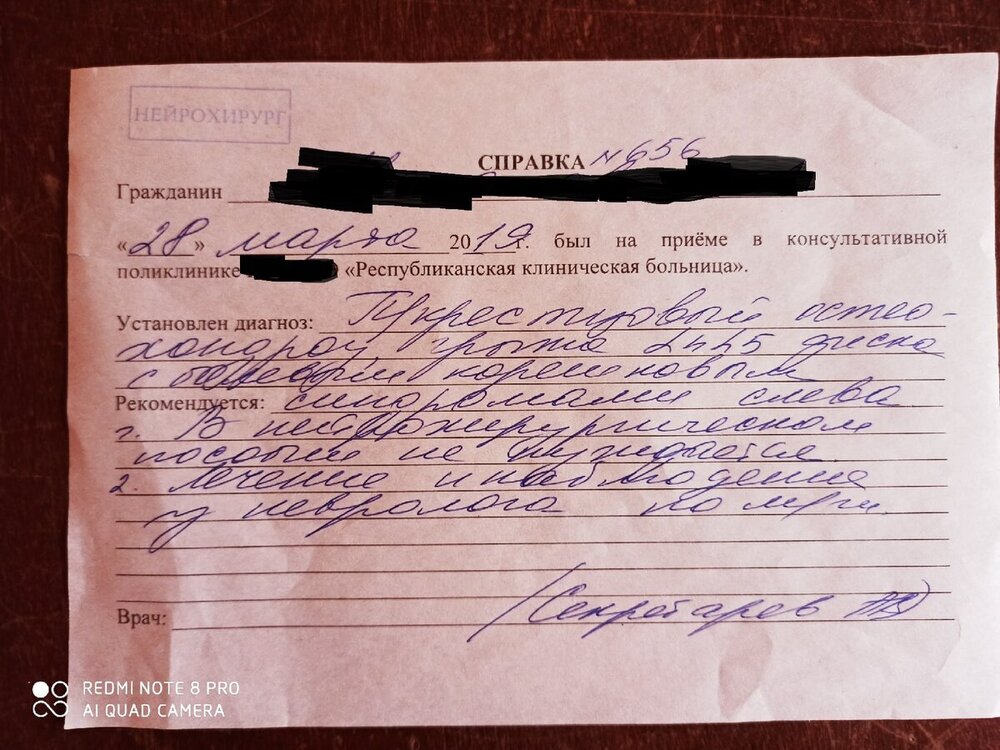 НЕЙРОХИРУРГ
СПРАВКА № 656
Гражданин
«28» марта 2019 г. был на приёме в консультативной
поликлинике «Республиканская клиническая больница».
Установлен диагноз: остео-
хондроз, грыжа L4L5 диска
с корешковым
Рекомендуется: синдромами слева
1. В нейрохирургическом
пособии не нуждается.
2. Лечение и наблюдение
у невролога по м/ж.
Врач: /Секретарев
REDMI NOTE 8 PRO
AI QUAD CAMERA